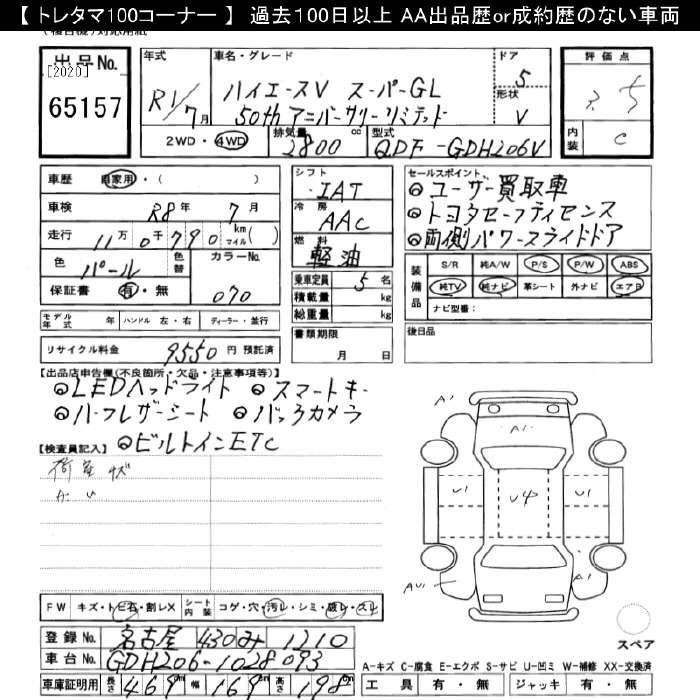 【 トレタマ100コーナー 】 過去100日以上 AA出品歴or成約歴のない車両
出品No.
[2020]
65157
年式
R1/7月
車名・グレード
ハイエースV スーパーGL
50thアニバーサリーリミテッド
ドア
5
形状
V
2WD・4WD
排気量
2800 cc
型式
QDF-GDH206V
評価点
5
内装
C
車歴 自家用・( )
車検 R8年 7月
走行 11万0千790 km マイル( )
色 パール
色替
カラーNo. 070
保証書 有・無
シフト
IAT
冷房
AAC
燃料
軽油
乗車定員 5名
積載量 kg
総重量 kg
書類期限
月 日
セールスポイント
ユーザー買取車
トヨタセーフティセンス
両側パワースライドドア
装備品
S/R 純A/W P/S P/W ABS
純TV 純ナビ 革シート 外ナビ エアB
ナビ型番:
後日品
モデル年式 年 ハンドル 左・右 ディーラー・並行
リサイクル料金 9550円 預託済
【出品店申告欄(不良箇所・欠品・注意事項等)】
LEDヘッドライト スマートキー
ハーフレザーシート バックカメラ
ビルトインETC
【検査員記入】
荷室
A1
A1
U1
U4
U1
A1
FW キズ・トビ石・割レX シート内装 コゲ・穴・汚レ・シミ・破レ・スレ
登録No. 名古屋 430 み 1210
車台No. GDH206-1028093
車庫証明用 長さ 469cm 幅 169cm 高さ 198cm
スペア
A-キズ C-腐食 E-エクボ S-サビ U-凹ミ W-補修 XX-交換済
工具 有・無 ジャッキ 有・無